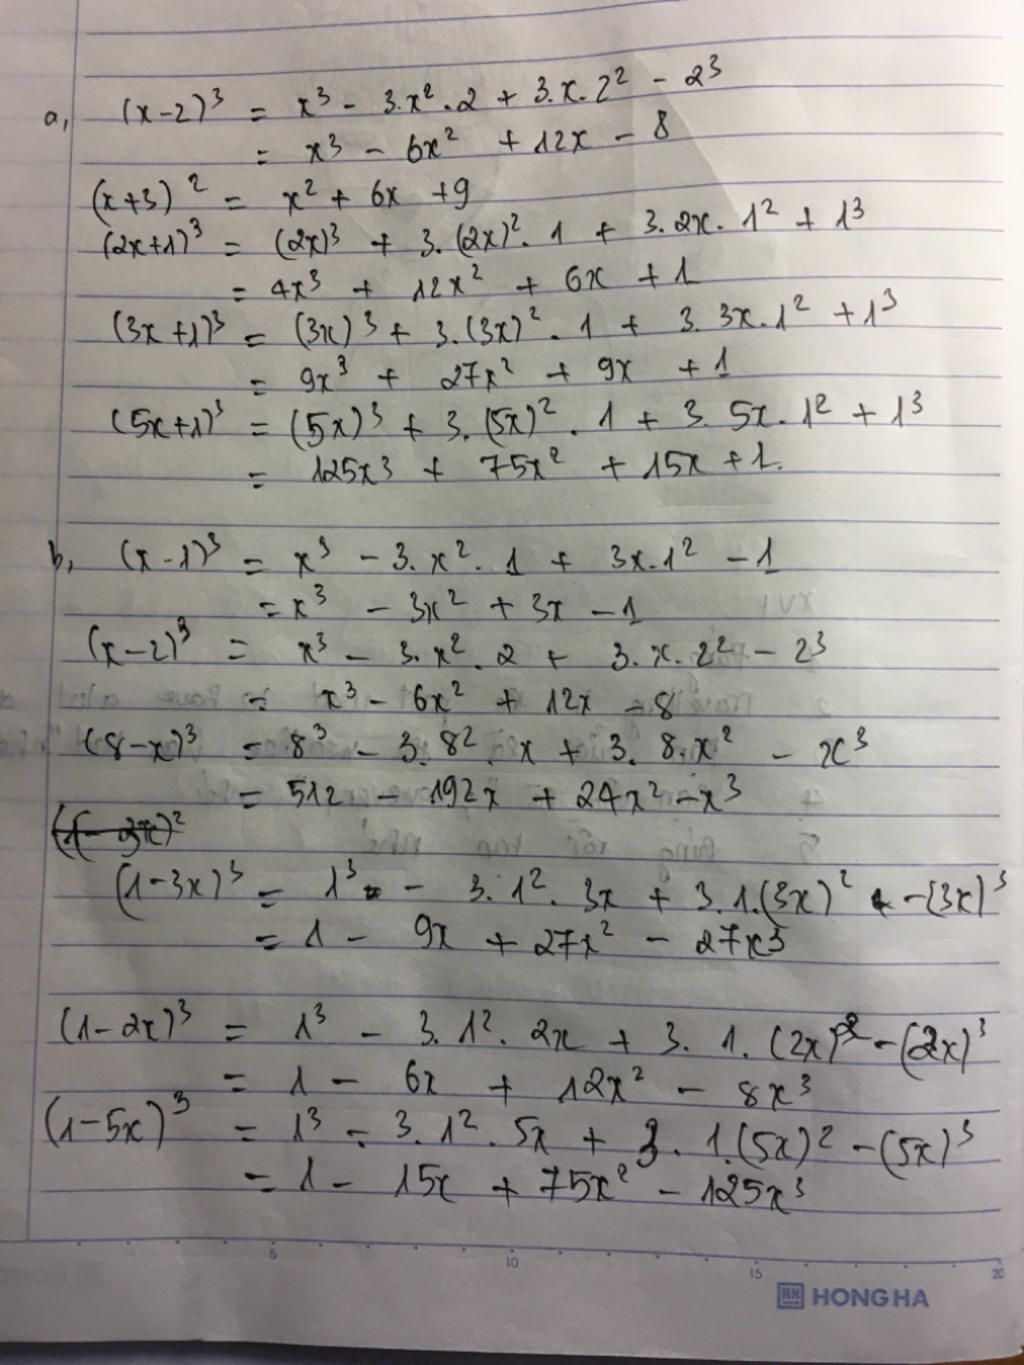 a, (x-2)³ = x³ - 3.x².2 + 3.x.2² - 2³
= x³ - 6x² + 12x - 8
(x+3)² = x² + 6x + 9
(2x+1)³ = (2x)³ + 3.(2x)².1 + 3.2x.1² + 1³
= 4x³ + 12x² + 6x + 1
(3x+1)³ = (3x)³ + 3.(3x)².1 + 3.3x.1² + 1³
= 9x³ + 27x² + 9x + 1
(5x+1)³ = (5x)³ + 3.(5x)².1 + 3.5x.1² + 1³
= 125x³ + 75x² + 15x + 1.
b, (x-1)³ = x³ - 3.x².1 + 3x.1² - 1
= x³ - 3x² + 3x - 1
(x-2)³ = x³ - 3.x².2 + 3.x.2² - 2³
= x³ - 6x² + 12x - 8
(8-x)³ = 8³ - 3.8².x + 3.8.x² - x³
= 512 - 192x + 24x² - x³
(1-3x)³ = 1³ - 3.1².3x + 3.1.(3x)² - (3x)³
= 1 - 9x + 27x² - 27x³
(1-2x)³ = 1³ - 3.1².2x + 3.1.(2x)² - (2x)³
= 1 - 6x + 12x² - 8x³
(1-5x)³ = 1³ - 3.1².5x + 3.1.(5x)² - (5x)³
= 1 - 15x + 75x² - 125x³
5 10 15 20
HH HONG HA